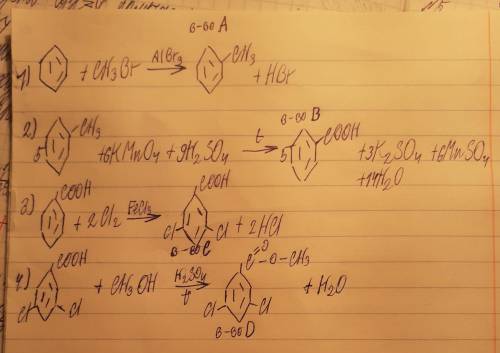 N5
в-во A
1) + CH3Br AlBr3 → CH3 + HBr
в-во B
2) 5 CH3 + 6KMnO4 + 9H2SO4 t → 5 COOH + 3K2SO4 + 6MnSO4
+ 14H2O
3) COOH + 2Cl2 FeCl3 → COOH Cl Cl + 2HCl
в-во C
4) COOH Cl Cl + CH3OH H2SO4 t → C=O -O-CH3 Cl Cl + H2O
в-во D